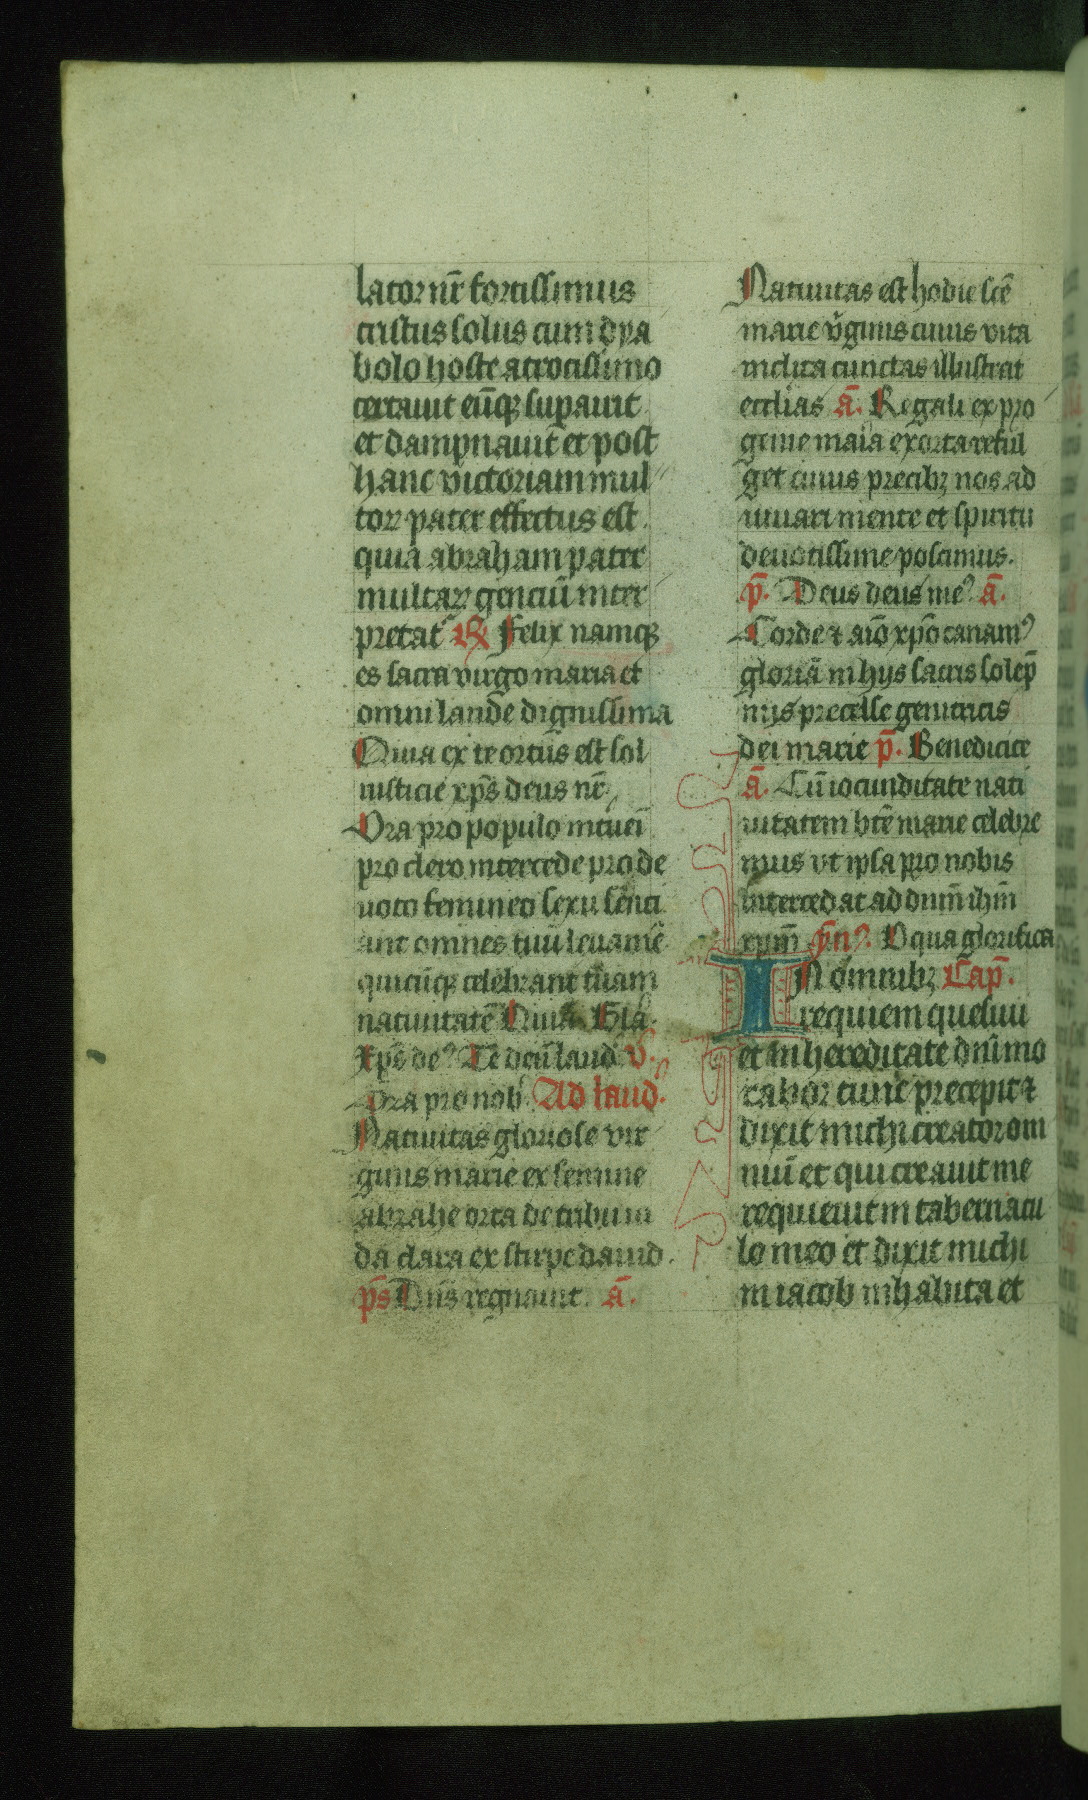 lator nr̄ fortissimus
cristus solus cum dya
bolo hoste atrocissimo
certauit eūq; supauit
et dampnauit et post
hanc victoriam mul
toꝝ pater effectus est.
quia abraham pater
multaꝝ genciū inter
pretat᷑ ℟ Felix namq;
es sacra virgo maria et
omni laude dignissima
Quia ex te ortus est sol
iusticie xp̄s deus nr̄
Ora pro populo interuēi
pro clero intercede pro de
uoto femineo sexu senci
ant omnes tuū leuamē
quicūq; celebrant tuam
natiuitatē Quia Gla.
Xp̄s deꝰ Te deū laud ℣.
Ora pro nob̄ Ad laud.
Natiuitas gloriose vir
ginis marie ex semine
abrahe orta de tribu iu
da clara ex stirpe dauid.
p̄s Dn̄s regnauit. ā.
Natiuitas est hodie scē
marie v̄ginis cuius vita
inclita cunctas illustrat
ecclias ā. Regali ex pro
genie maīa exorta reful
get cuius precib; nos ad
iuuari mente et spiritu
deuotissime poscimus.
p̄. Deus deus meꝰ ā.
Corde ⁊ aīo xp̄o canamꝰ
gloriā in hijs sacris solēp
nijs precelse genitricis
dei marie p̄. Benedicite
ā. Cū iocunditate nati
uitatem btē marie celebre
mus vt ipsa pro nobis
intercedat ad dnm̄ ihm̄
xpm̄ ym̄nꝰ. O qua glorifica
IN omnib; Cap̄.
requiem quesiui
et in hereditate dn̄i mo
rabor tunc precepit ⁊
dixit michi creator om
niū et qui creauit me
requieuit in tabernacu
lo meo et dixit michi
in iacob inhabita et